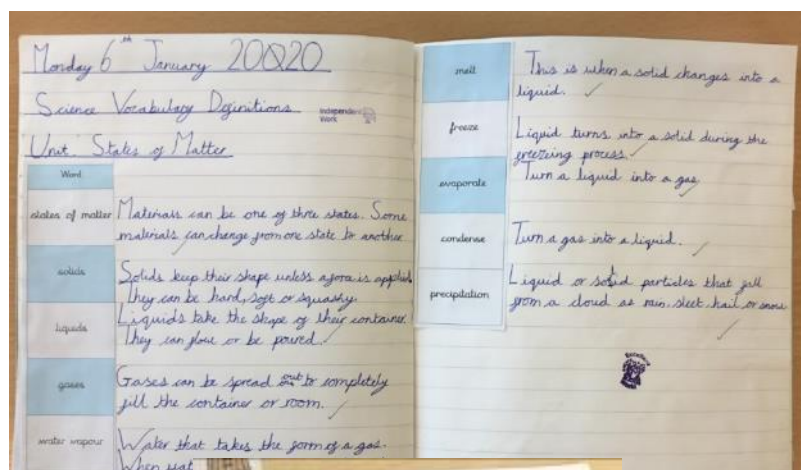 Monday 6th January 20020
Science Vocabulary Definitions
Independent
Work
Unit: States of Matter
Word
states of matter
Materials can be one of three states. Some
materials can change from one state to another
solids
Solids keep their shape unless a force is applied.
They can be hard, soft or squashy.
liquids
Liquids take the shape of their container.
They can flow or be poured.
gases
Gases can be spread out to completely
fill the container or room.
water vapour
Water that takes the form of a gas.
When wat
melt
This is when a solid changes into a
liquid.
freeze
Liquid turns into a solid during the
freezing process.
evaporate
Turn a liquid into a gas
condense
Turn a gas into a liquid.
precipitation
Liquid or solid particles that fall
from a cloud as rain, sleet, hail or snow